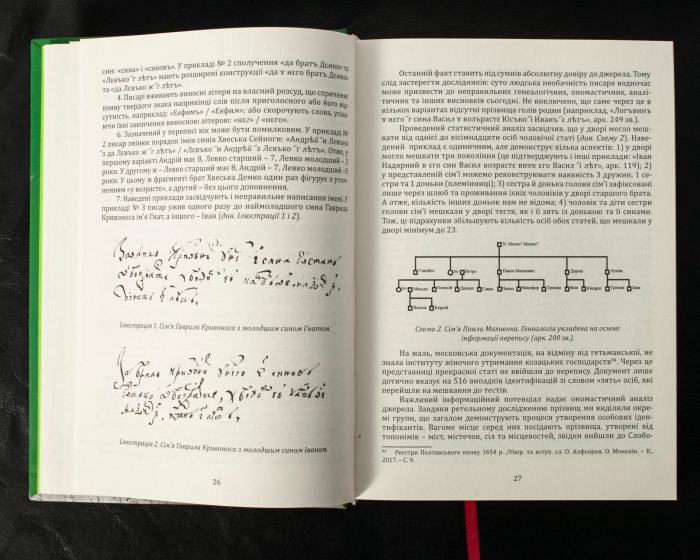 син: «сина» і «синовъ». У прикладі № 2 сполучення «да братъ Демко» та
«Левъко ˜г лѣтъ» мають розширені конструкції «да ү него братъ Демко»
та «да Левъко ж ˜г лѣтъ».
4. Писарі вживають виносні літери на власний розсуд, що спричиняє
появу твердого знака наприкінці слів після приголосного або його від-
сутність, наприклад: «Еѳимъ» / «Еѳим»; або скорочують слова, усіка-
ючи їхні закінчення виносною літерою: «нег» / «него».
6. Зазначений у переписі вік може бути помилковим. У прикладі №
2 писар змінює порядок імен синів Хвеська Сейноги: «Андрѣй
лѣтъ». Отже, у
першому варіанті Андрій має 8, Левко старший – 7, Левко молодший – 3
роки. У другому ж – Левко старший має 8, Андрій – 7, Левко молодший – 3
роки. У цьому ж фрагменті брат Хвеська Демко один раз фігурує з уточ-
ненням «у возрасте», а другий – без цього доповнення.
7. Наведені приклади засвідчують і неправильне написання імені. У
прикладі № 3 писар ужив одного разу до наймолодшого сина Гаврила
Кривоноса ім'я Гнат, а іншого – Іван (див. Ілюстрації 1 і 2).
Ілюстрація 1. Сім'я Гаврила Кривоноса з молодшим сином Гнатом.
Ілюстрація 2. Сім'я Гаврила Кривоноса з молодшим сином Іваном.
26
Останній факт ставить під сумнів абсолютну довіру до джерела. Тому
слід застерегти дослідників: суто людська необачність писаря водночас
може призвести до неправильних генеалогічних, ономастичних, аналі-
тичних та інших висновків сьогодні. Не виключено, що саме через це в
кількох варіантах відсутні прізвища голів родин (наприклад, «Логъвинъ
ү него ˜г сына Васил ү возърасте Юсько ˜і Иванъ лѣтъ», арк. 249 зв.).
Проведений статистичний аналіз засвідчив, що у дворі могло меш-
кати від однієї до вісімнадцяти осіб чоловічої статі (див. Схему 2). Наве-
дений приклад є одиничним, але демонструє кілька аспектів: 1) у дворі
могло мешкати три покоління (це підтверджують і інші приклади: «Іван
Надярний в его син Васил возрасти внях его Васил лѣтъ», арк. 119); 2)
у представленій сім'ї можемо реконструювати наявність 3 дружин, 1 се-
стри та 1 доньки (племінниці); 3) сестра й донька голови сім'ї зафіксовані
лише через шлюб та проживання їхніх чоловіків у дворі старшого брата.
А отже, кількість інших доньок нам не відома; 4) чоловік та діти сестри
голови сім'ї мешкали у дворі тестя, як і її зять із донькою та її синами.
Тож, ці підрахунки збільшують кількість осіб обох статей, що мешкали у
дворі мінімум до 23.
N. Михно? Махно?
Павло Махненко
Схема 2. Сім'я Павла Махненка. Генеалогія укладена на основі
інформації перепису (арк. 200 зв.).
На жаль, московська документація, на відміну від гетьманської, не
знала інституту жіночого утримання козацьких господарств⁸⁴. Через це
представниці прекрасної статі не ввійшли до перепису. Документ лише
дотично вказує на 516 випадків ідентифікацій зі словом «зять» осіб, які
перейшли на мешкання до тестів.
Важливий інформаційний потенціал надає ономастичний аналіз
джерела. Завдяки ретельному дослідженню прізвищ ми виділили окре-
мі групи, що загалом демонструють процеси утворення особових іден-
тифікантів. Вагоме місце серед них посідають прізвища, утворені від
топонімів – міст, містечок, сіл та місцевостей, звідки вийшли до Слобо-
84 Реєстри Полтавського полку 1654 р. /Упор. та вступ. сл. О. Алфьоров, О. Монькін. – К.,
2017. – С. 9.
27